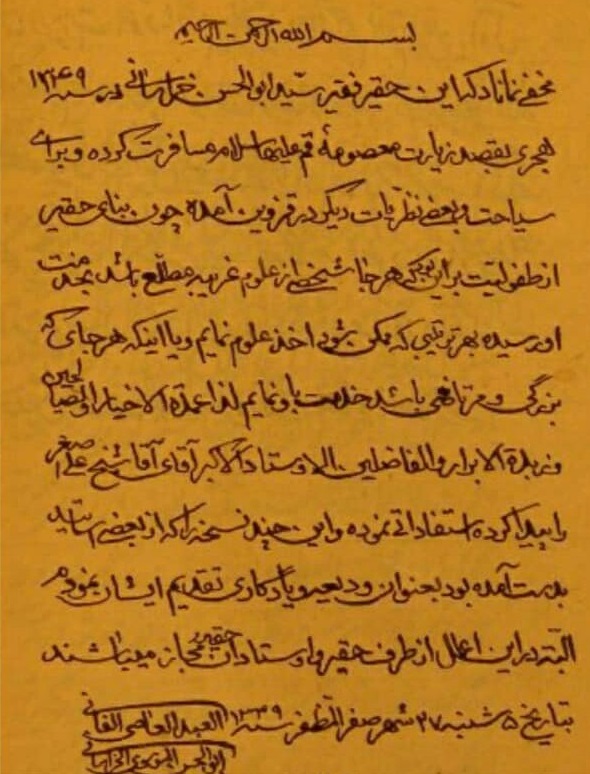 بسم الله الرحمن الرحیم
مخفی نماناد که این حقیر فقیر سید ابوالحسن خراسانی در سنه ۱۳۴۹
هجری بقصد زیارت معصومهٔ قم علیها سلام مسافرت کرده و برای
سیاحت و بعضی نظریات دیگر در قزوین آمده چون بنای حقیر
از طفولیت براین بوده که هر جا شخصی از علوم غریبه مطلع باشد بخدمت
او رسیده بهر ترتیبی که ممکن بشود اخذ علوم نمایم و یا اینکه هر جای که
بزرگی و مرتاضی باشد خدمت باو نمایم لذا عمدة الاخیار والصالحین
و زبدة الابرار والفاضلین الاوستاد الاکبر آقای آقا شیخ علی اصغر
را پیدا کرده استفاداتی نموده و این چند نسخه را که از بعضی اساتید
بدست آمده بود بعنوان ودیعه و یادگاری تقدیم ایشان نمودم
البته در این اعمال از طرف حقیر و اوستادان حقیر مجاز میباشند
بتاریخ ۵ شنبه ۲۷ شهر صفر المظفر سنه ۱۳۴۹ العبد العاصی الفانی
ابوالحسن الموسوی الخراسانی